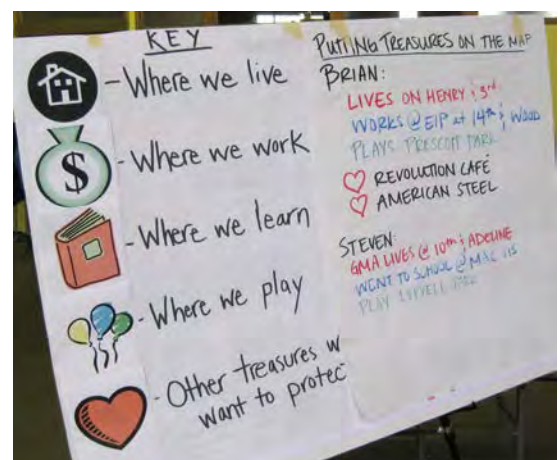 KEY
- Where we live
$ - Where we work
- Where we learn
- Where we play
- Other treasures w
want to protec
PUTTING TREASURES ON THE MAP
BRIAN:
LIVES ON HENRY & 3rd
WORKS @ EIP at 14th & WOOD
PLAYS PRESCOTT PARK
REVOLUTION CAFÉ
AMERICAN STEEL
STEVEN:
GMA LIVES @ 10th & ADELINE
WENT TO SCHOOL @
PLAY PARK